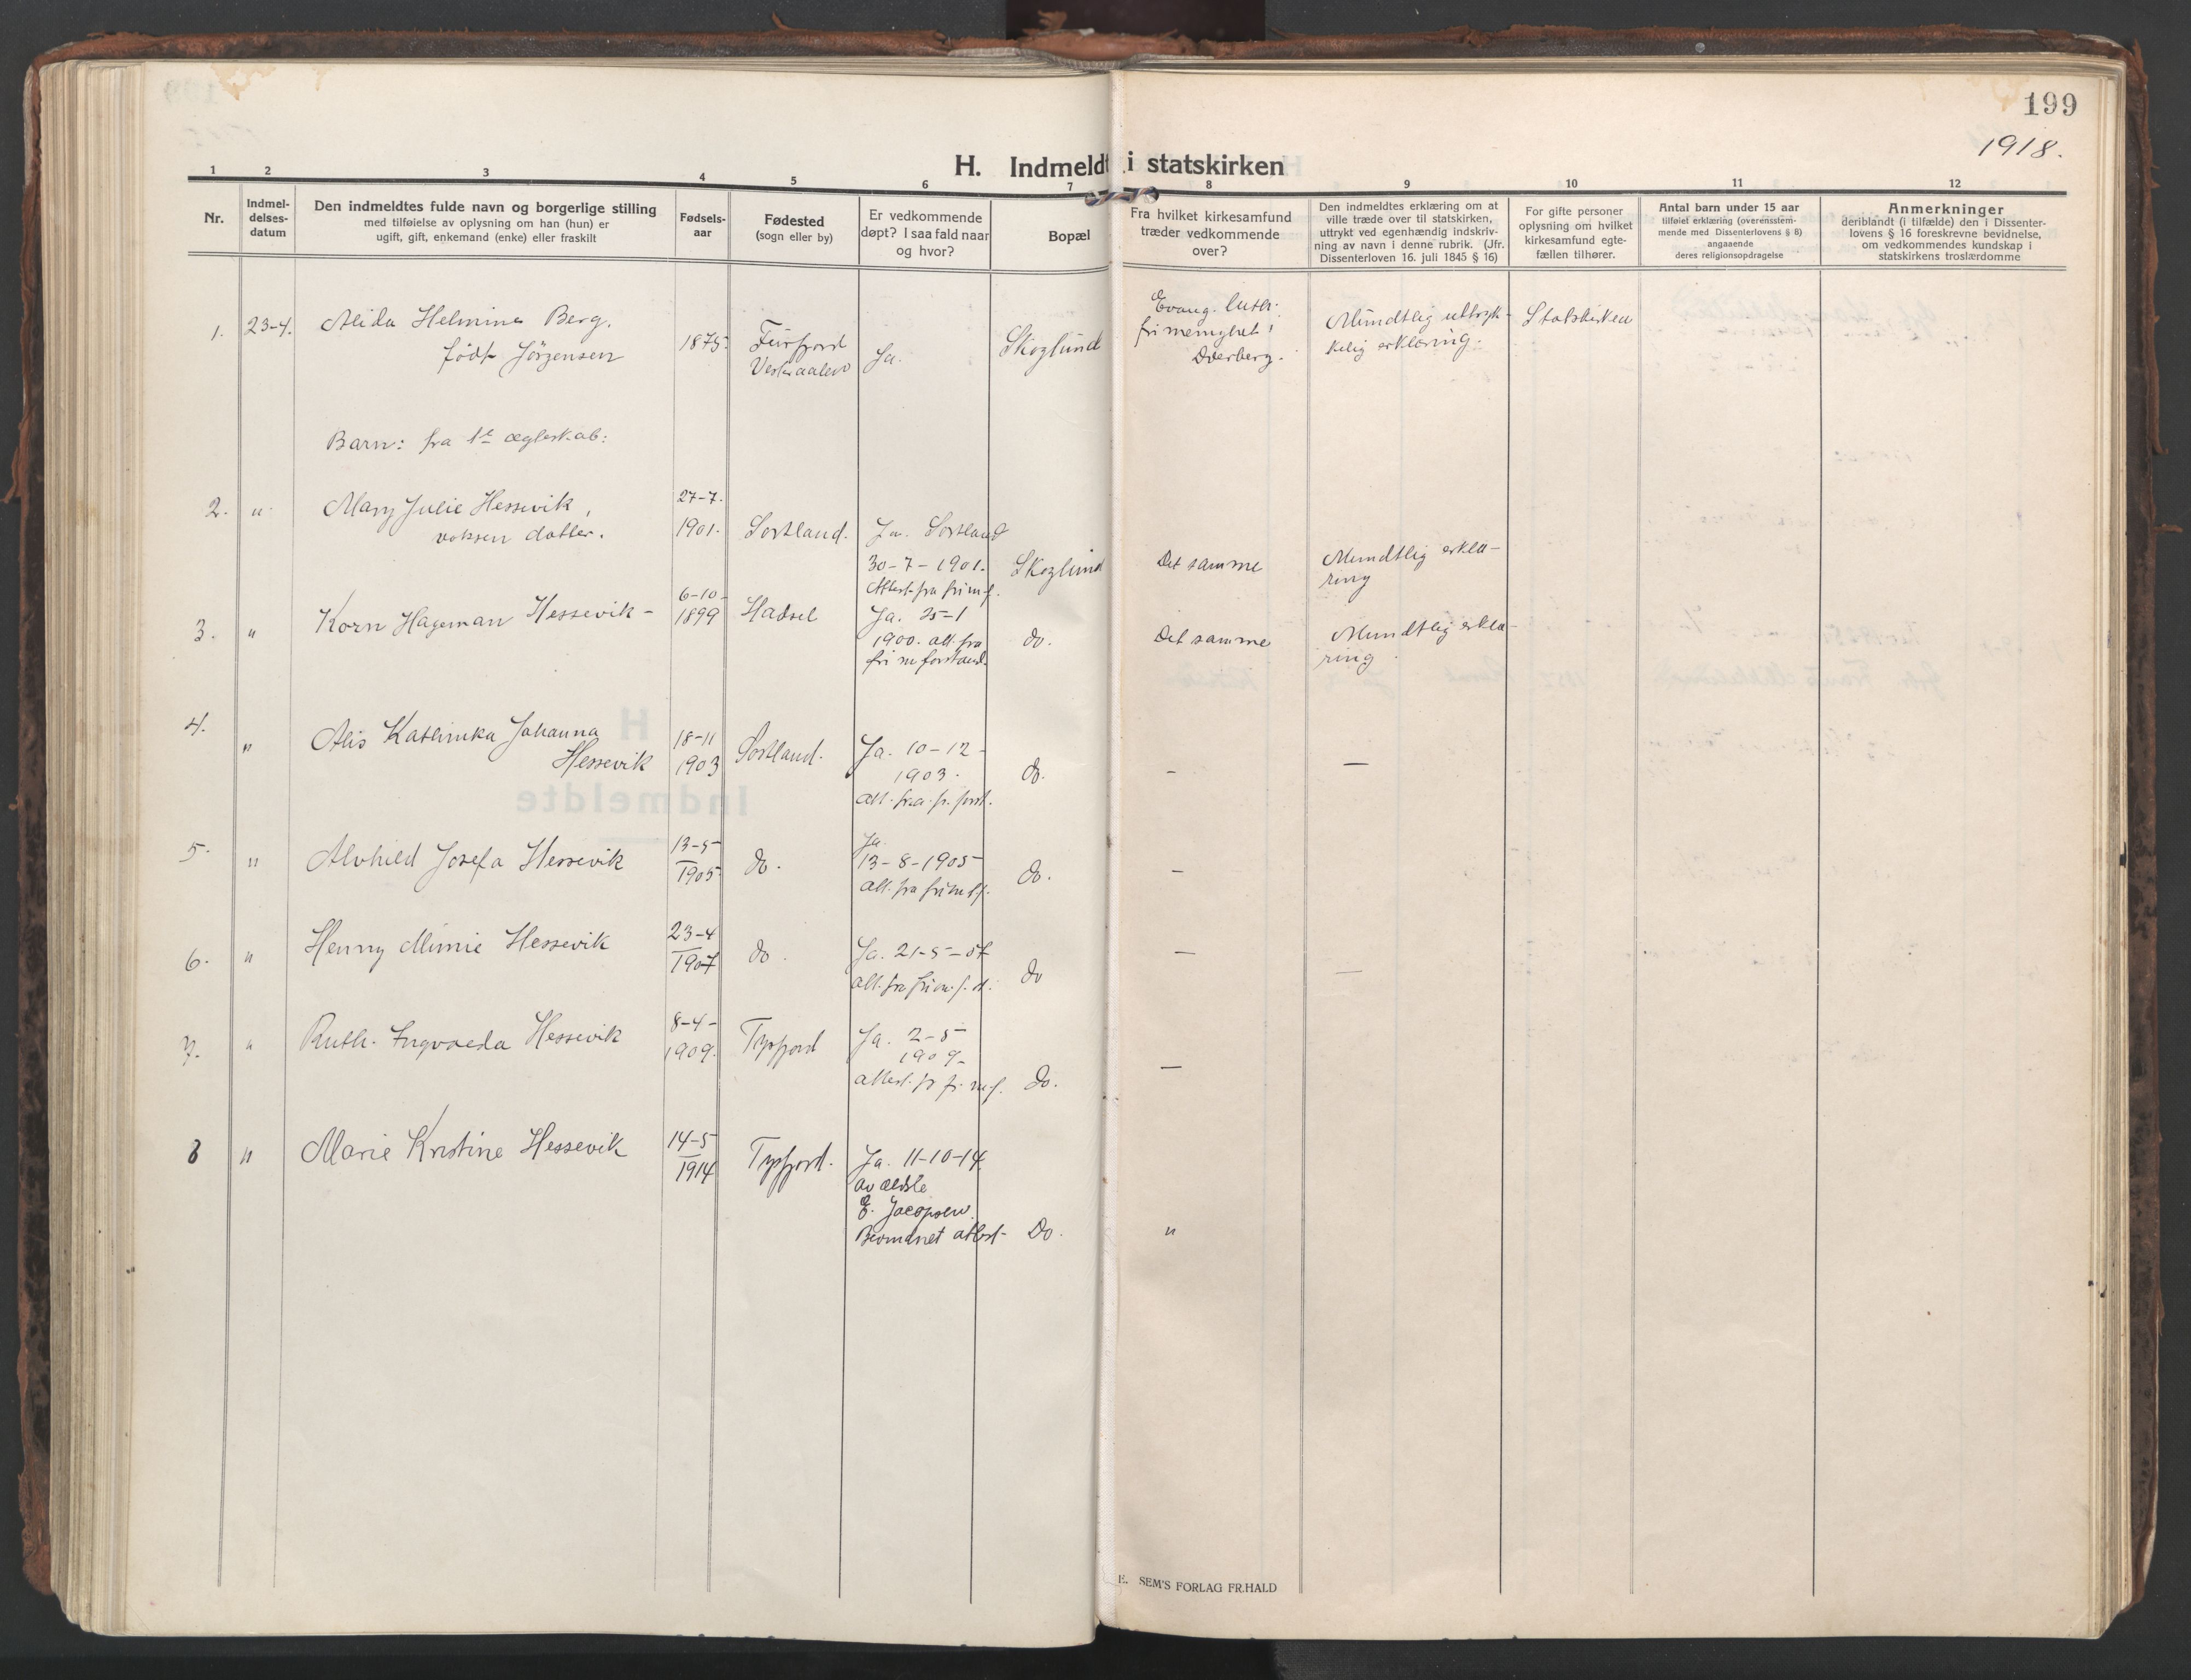 199
1918.
H. Indmeldt i statskirken
1 2 3 4 5 6 7 8 9 10 11 12
Nr.
Indmel-
delses-
datum
Den indmeldtes fulde navn og borgerlige stilling
med tilføielse av oplysning om han (hun) er
ugift, gift, enkemand (enke) eller fraskilt
Fødsels-
aar
Fødested
(sogn eller by)
Er vedkommende
døpt? I saa fald naar
og hvor?
Bopæl
Fra hvilket kirkesamfund
træder vedkommende
over?
Den indmeldtes erklæring om at
ville træde over til statskirken,
uttrykt ved egenhændig indskriv-
ning av navn i denne rubrik. (Jfr.
Dissenterloven 16. juli 1845 § 16)
For gifte personer
oplysning om hvilket
kirkesamfund egte-
fællen tilhører.
Antal barn under 15 aar
tilføiet erklæring (overensstem-
mende med Dissenterlovens § 8)
angaaende
deres religionsopdragelse
Anmerkninger
deriblandt (i tilfælde) den i Dissenter-
lovens § 16 foreskrevne bevidnelse,
om vedkommendes kundskap i
statskirkens troslærdomme
1.
23-4.
Alida Helmine Berg.
født Jörgensen
1875.
Vesteraalen
Ja.
Skoglund
Evang. luth.
fri menighet i
Dverberg.
Mundtlig uttryk-
kelig erklæring.
Statskirken
Barn: fra 1ste
2.
"
Mary Julie Hessevik,
voksen datter.
27-7-
1901.
Sortland.
Ja. Sortland
30-7-1901.
Attest fra fri m.f.
Skoglund
Det samme
Mundtlig erklæ-
ring
3.
"
Korn Hageman Hessevik -
6-10-
1899
Hadsel
Ja. 25-1
1900. att. fra
fri m forstand.
do.
Det samme
Mundtlig erklæ-
ring
4.
"
Alis Kathinka Johanna
Hessevik
18-11
1903
Sortland.
Ja. 10-12-
1903.
att. fra fr. forst.
do.
-
-
5.
"
Alvhild Josefa Hessevik
13-5-
1905
do.
Ja
13-8-1905
att. fra fri m f.
do.
-
6.
"
Henny Mimie Hessevik
23-4
1907
do.
Ja. 21-5-07
att. fra fri m. f. st.
do
-
-
7.
"
Ruth Ingvarda Hessevik
8-4-
1909.
Tysfjord
Ja. 2-5
1909-
attest. fr fr. m f.
do.
-
8
"
Marie Kristine Hessevik
14-5
1914
Tysfjord.
Ja. 11-10-14
av ældste
E. Jacobsen.
attest-
Do.
"
E. SEM'S FORLAG FR. HALD